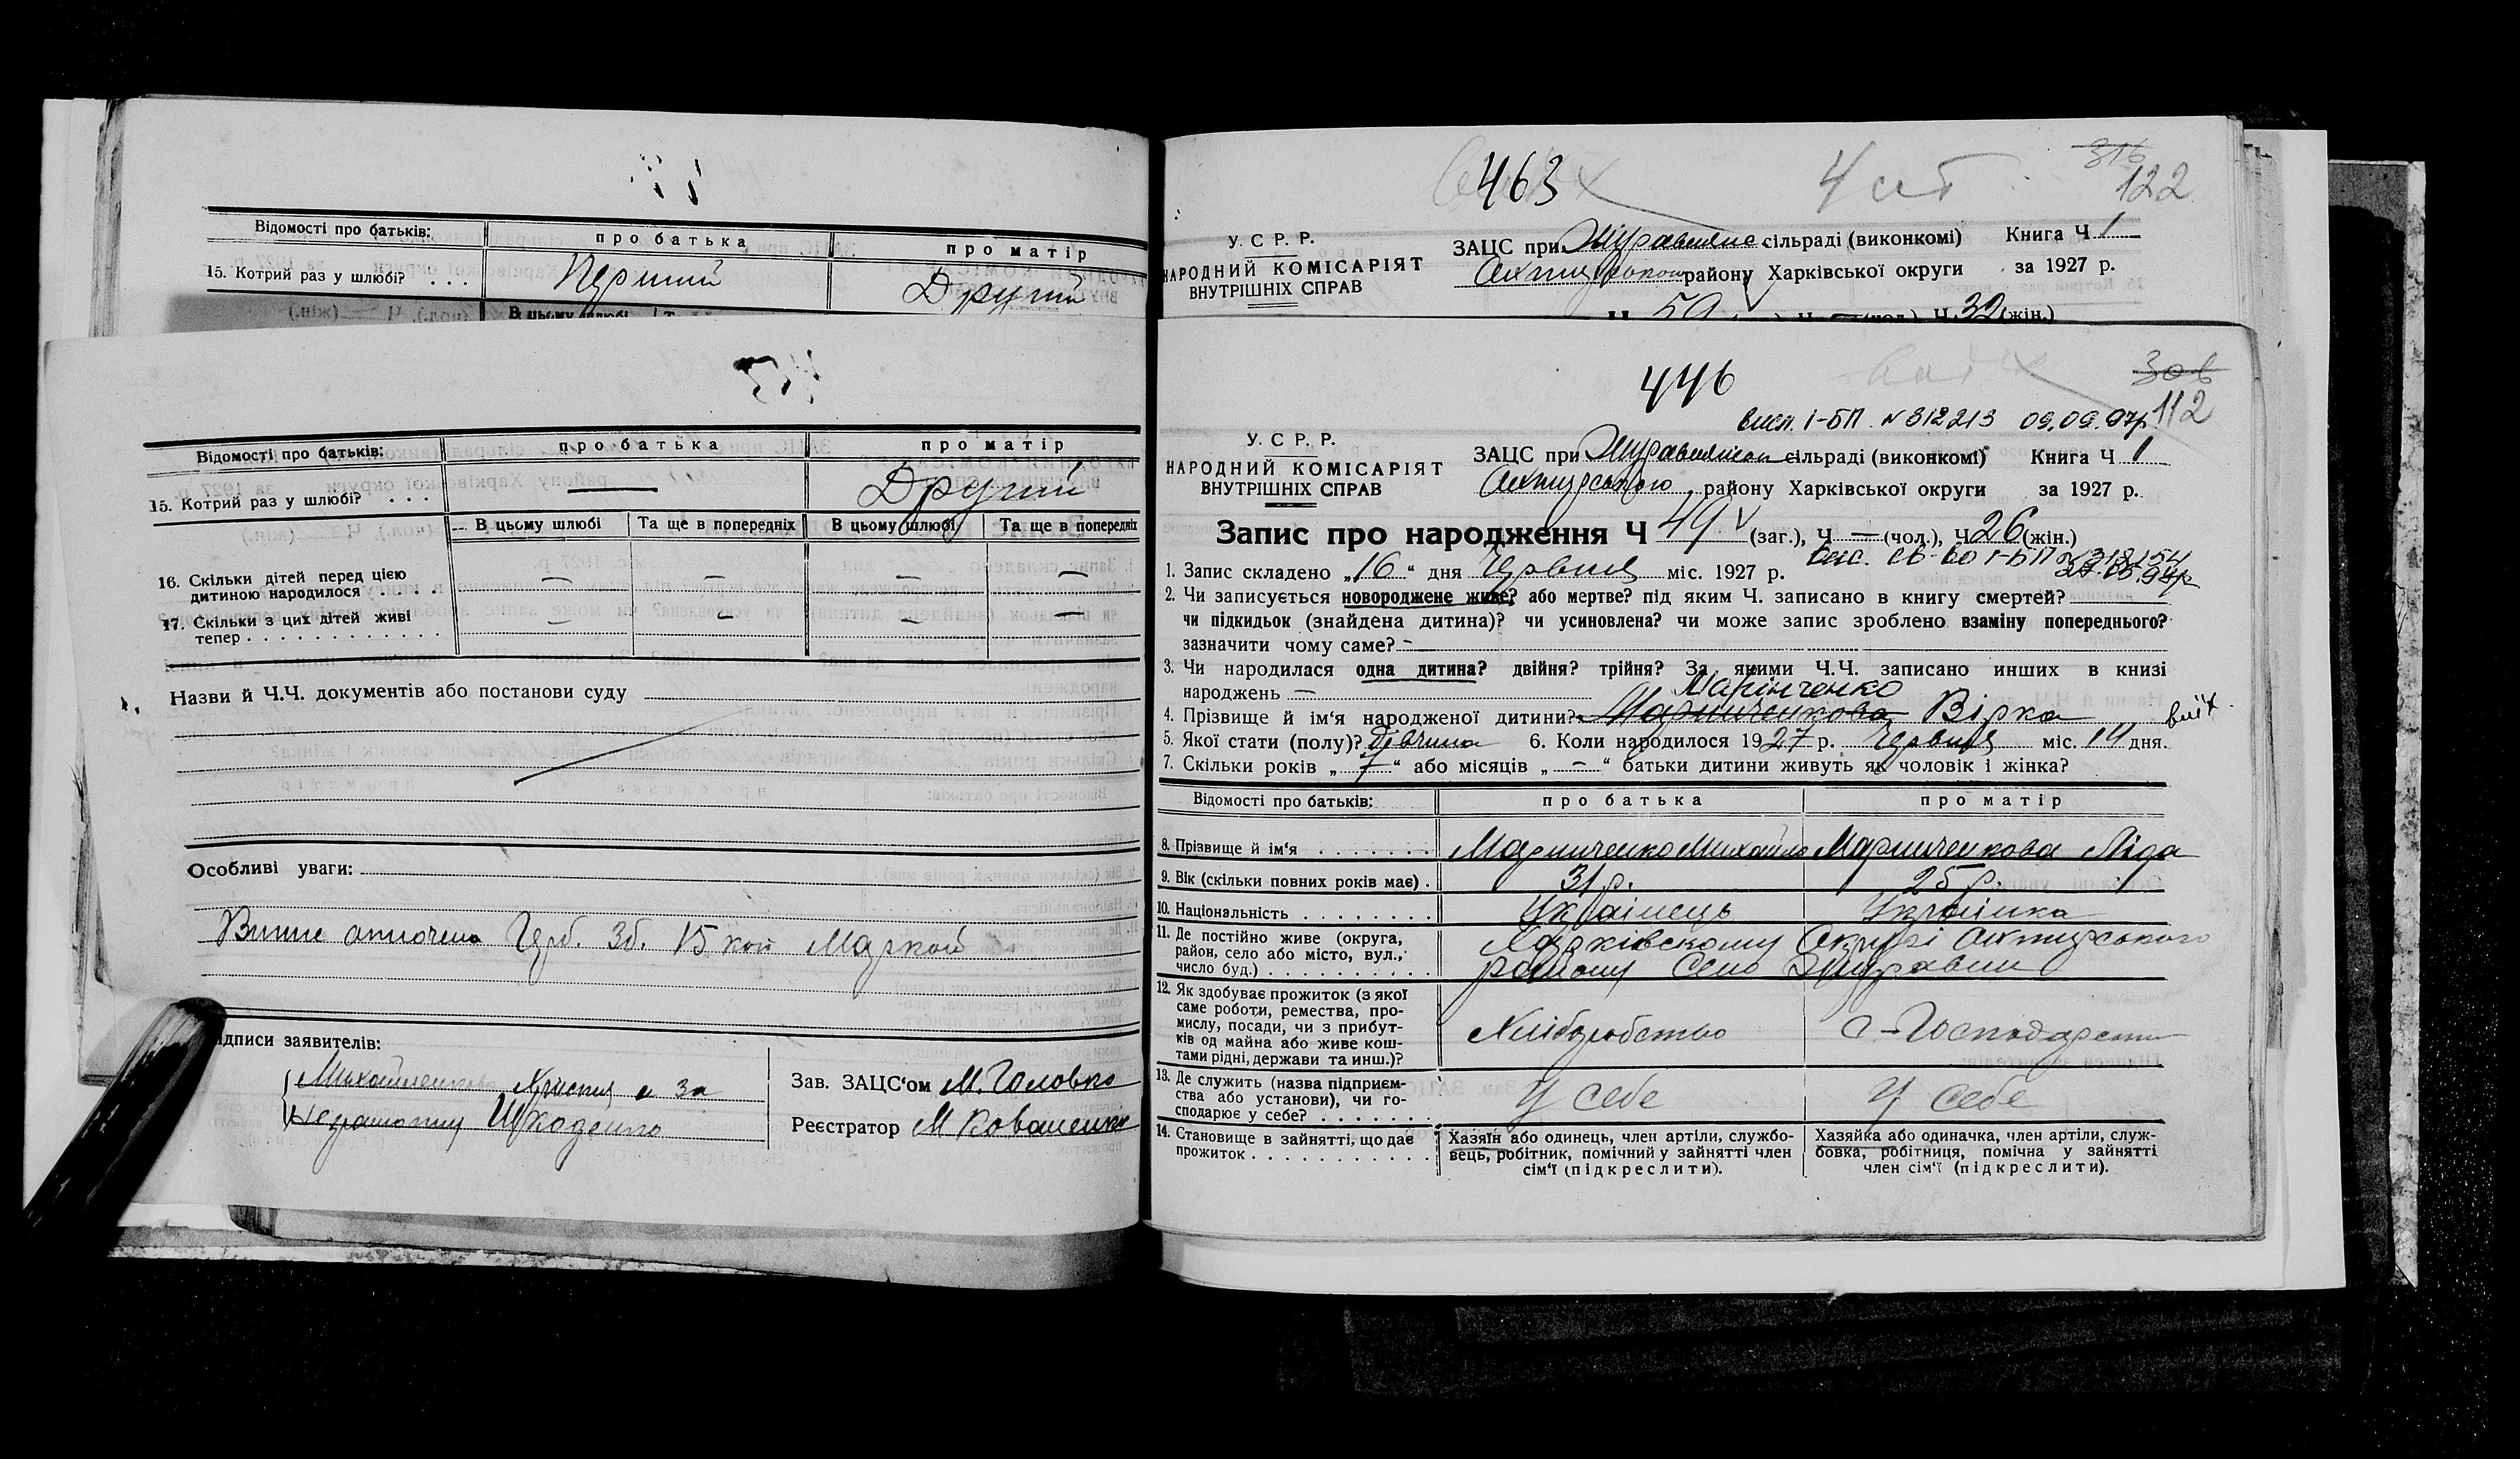 Відомості про батьків: про батька про матір
15. Котрий раз у шлюбі? . . . Перший Другий
Відомості про батьків: про батька про матір
15. Котрий раз у шлюбі? . . . — Другий
В цьому шлюбі Та ще в попередніх В цьому шлюбі Та ще в попередніх
16. Скільки дітей перед цією
дитиною народилося . . . . — — — —
17. Скільки з цих дітей живі
тепер . . . . . . . . . . . . — — — —
Назви й Ч.Ч. документів або постанови суду
Особливі уваги:
Герб. Зб. 15 коп Маркой
ідписи заявителів:
Христя а за
Зав. ЗАЦС‘ом М. Головко
Реєстратор М
463 4 316
122
У. С. Р. Р.
НАРОДНИЙ КОМІСАРІЯТ
ВНУТРІШНІХ СПРАВ
ЗАЦС при сільраді (виконкомі) Книга Ч 1
району Харківської округи за 1927 р.
59 Ч. 32 (жін.)
446 306
112
висл. І-БП № 312213 09.09.97р
У. С. Р. Р.
НАРОДНИЙ КОМІСАРІЯТ
ВНУТРІШНІХ СПРАВ
ЗАЦС при сільраді (виконкомі) Книга Ч 1
Охтирського району Харківської округи за 1927 р.
Запис про народження Ч 49 (заг.), Ч — (чол.), Ч 26 (жін.)
1. Запис складено „16“ дня Червня міс. 1927 р.
2. Чи записується новороджене живе? або мертве? під яким Ч. записано в книгу смертей?
чи підкидьок (знайдена дитина)? чи усиновлена? чи може запис зроблено взаміну попереднього?
зазначити чому саме? —
3. Чи народилася одна дитина? двійня? трійня? За якими Ч.Ч. записано инших в книзі
народжень —
Марінченко
4. Прізвище й ім‘я народженої дитини? Маринченкова Вірка
5. Якої стати (полу)? Дівчина 6. Коли народилося 1927 р. Червня міс. 14 дня.
7. Скільки років „7“ або місяців „—“ батьки дитини живуть як чоловік і жінка?
Відомості про батьків: про батька про матір
8. Прізвище й ім‘я . . . . . . . Маринченко Михайло Маринченкова Ліда
9. Вік (скільки повних років має) . 31 р. 25 р.
10. Національність . . . . . . . . Українець Українка
11. Де постійно живе (округа,
район, село або місто, вул.,
число буд.) . . . . . . . . . . Харківскому Окрузі Охтирського
району Село Журавни
12. Як здобуває прожиток (з якої
саме роботи, ремества, про-
мислу, посади, чи з прибут-
ків од майна або живе кош-
тами рідні, держави та инш.)?
Хліборобство
13. Де служить (назва підприєм-
ства або установи), чи го-
сподарює у себе? . . . . . . . У себе У себе
14. Становище в зайнятті, що дає
прожиток . . . . . . . . . . . .
Хазяїн або одинець, член артіли, службо-
вець, робітник, помічний у зайнятті член
сім‘ї (підкреслити).
Хазяйка або одиначка, член артіли, служ-
бовка, робітниця, помічна у зайнятті
член сім‘ї (підкреслити).